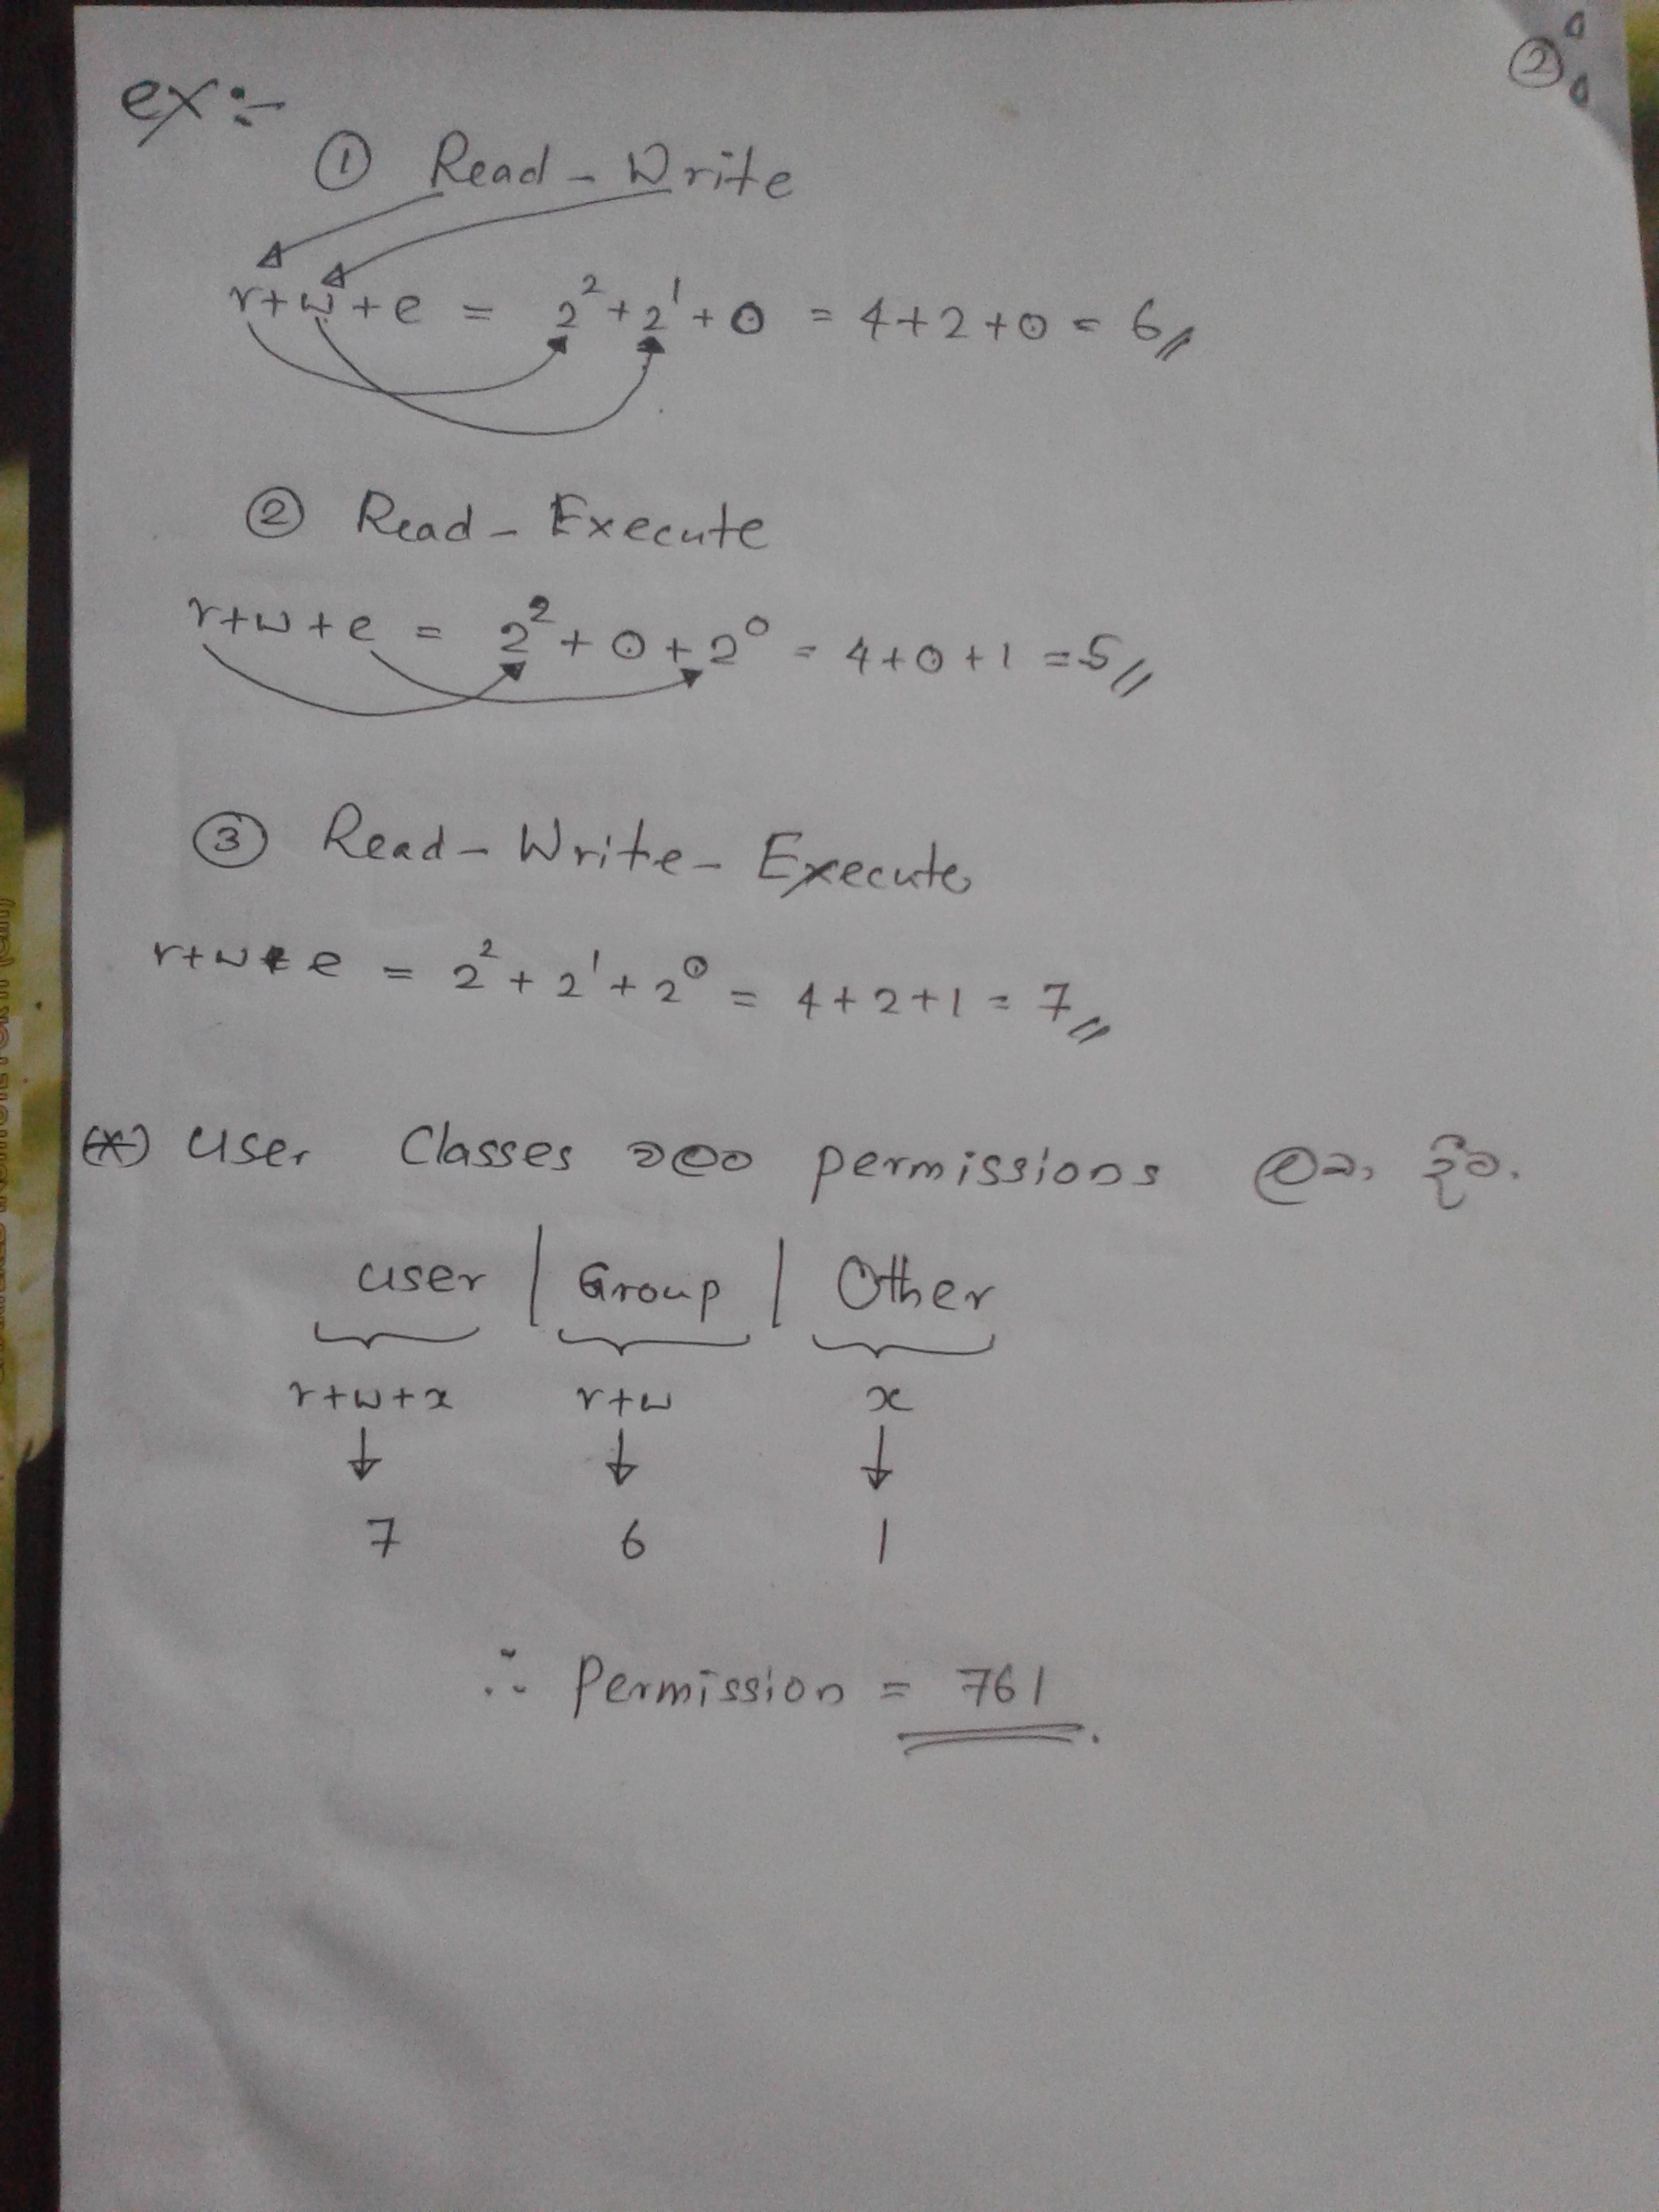 ②
ex:-
① Read - Write
r+w+e = 2² + 2¹ + 0 = 4+2+0 = 6
② Read - Execute
r+w+e = 2² + 0 + 2⁰ = 4+0+1 = 5
③ Read - Write - Execute
r+w+e = 2² + 2¹ + 2⁰ = 4+2+1 = 7
(*) User Classes permissions
user | Group | Other
r+w+x r+w x
↓ ↓ ↓
7 6 1
∴ Permission = 761.